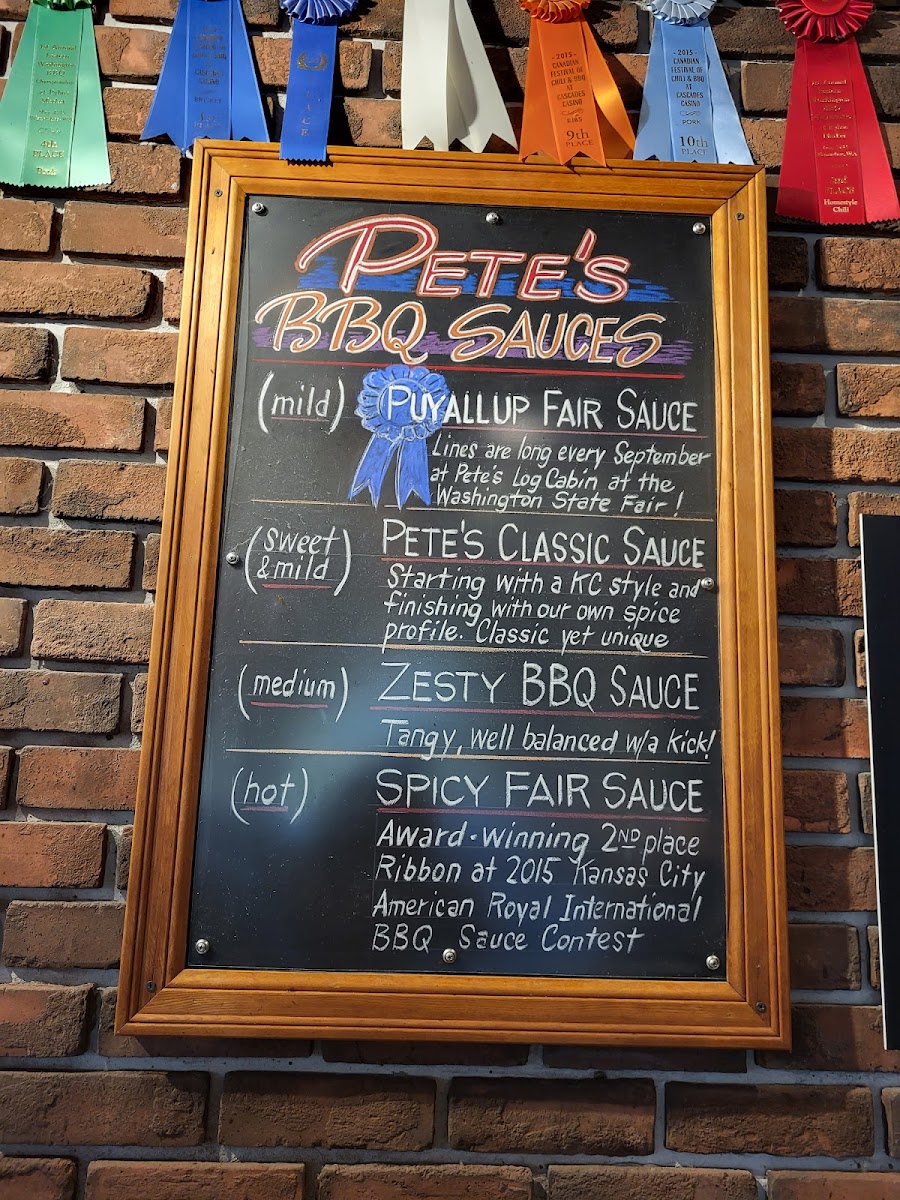 4th
PLACE
PLACE
- 2015 -
CANADIAN
FESTIVAL OF
CHILI & BBQ
AT
CASCADES
CASINO
9th
PLACE
- 2015 -
CANADIAN
FESTIVAL OF
CHILI & BBQ
AT
CASCADES
CASINO
PORK
10th
PLACE
2nd
PLACE
Homestyle
Chili
PETE'S
BBQ SAUCES
(mild) PUYALLUP FAIR SAUCE
Lines are long every September
at Pete's Log Cabin at the
Washington State Fair!
(sweet & mild) PETE'S CLASSIC SAUCE
Starting with a KC style and
finishing with our own spice
profile. Classic yet unique
(medium) ZESTY BBQ SAUCE
Tangy, well balanced w/a kick!
(hot) SPICY FAIR SAUCE
Award-winning 2ND place
Ribbon at 2015 Kansas City
American Royal International
BBQ Sauce Contest